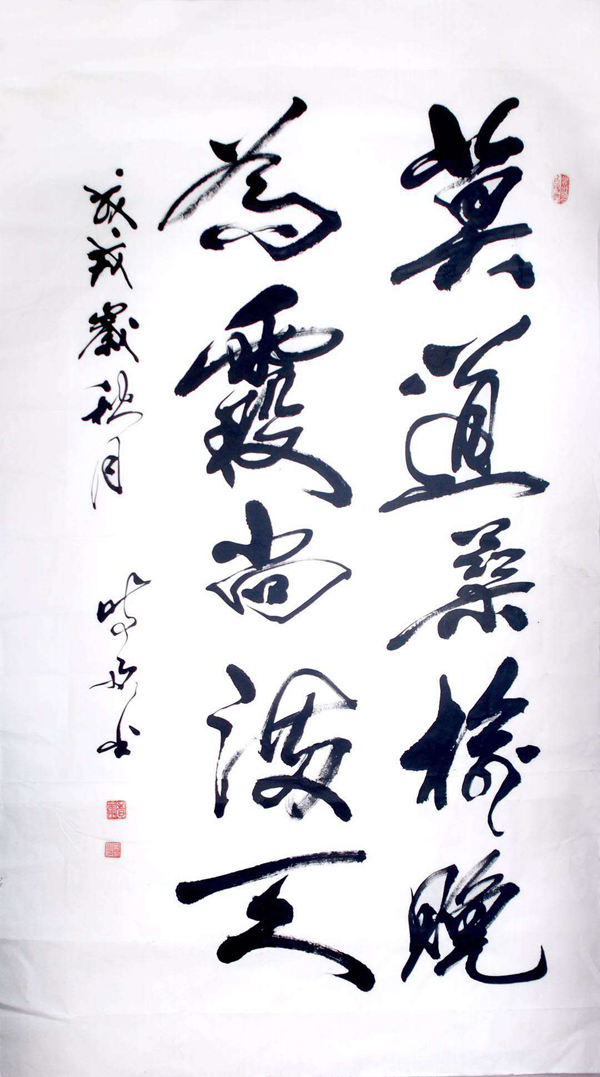 莫道桑榆晚
為霞尚滿天
戊戌歲秋月